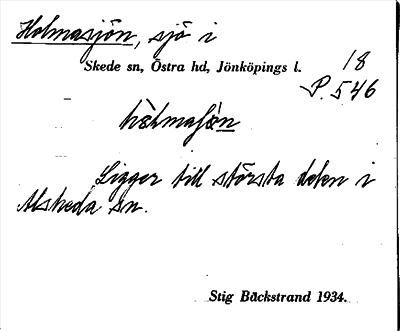 Holmasjön, sjö i
Skede sn, Östra hd, Jönköpings l.
18
P. 546
Ligger till största delen i
Alsheda sn.
Stig Bäckstrand 1934.